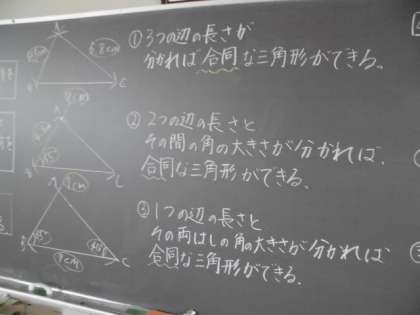 ①3つの辺の長さが
分かれば合同な三角形ができる。
②2つの辺の長さと
その間の角の大きさが分かれば、
合同な三角形ができる。
③1つの辺の長さと
その両はしの角の大きさが分かれば、
合同な三角形ができる。
A
B
C
A
B
C
A
B
C